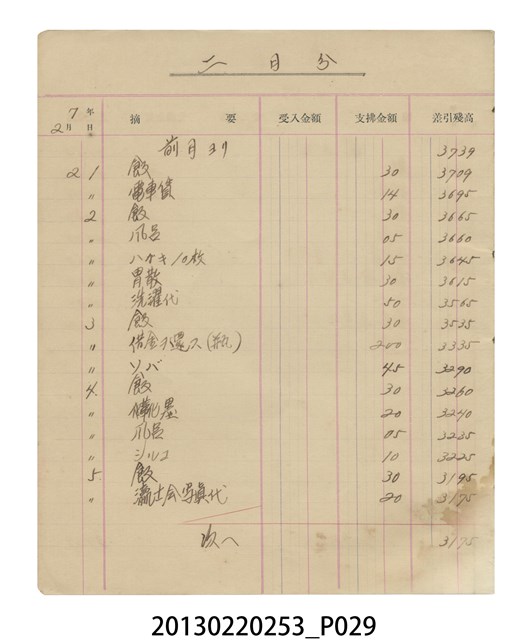 二月分
7年 2月 日 摘要 受入金額 支拂金額 差引殘高
前月ヨリ 3739
2 1 飯 30 3709
〃 電車賃 14 3695
2 飯 30 3665
〃 風呂 05 3660
〃 ハガキ10枚 15 3645
〃 胃散 30 3615
〃 洗濯代 50 3565
3 飯 30 3535
〃 借金ヲ還ス 200 3335
〃 ソバ 45 3290
4 飯 30 3260
〃 墨 20 3240
〃 風呂 05 3235
〃 シルコ 10 3225
5 飯 30 3195
〃 士会写真代 20 3175
次へ 3175
20130220253_P029